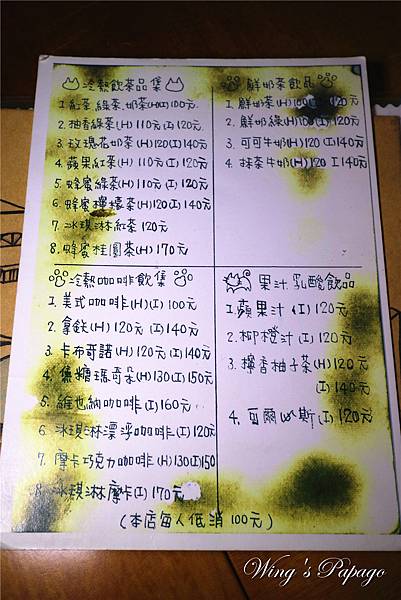 冷熱飲茶品集
1. 紅茶.綠茶.奶茶(H)(I)100元.
2. 柚香綠茶(H)110元(I)120元.
3. 玫瑰花奶茶(H)120(I)140元
4. 蘋果紅茶(H)110元(I)120元
5. 蜂蜜綠茶(H)110元(I)120元
6. 蜂蜜檸檬茶(H)120(I)140元
7. 冰琪淋紅茶120元
8. 蜂蜜桂圓茶(H)170元
鮮奶茶飲品
1. 鮮奶茶(H)100(I)120元
2. 鮮奶綠(H)100(I)120元
3. 可可牛奶(H)120(I)140元
4. 抹茶牛奶(H)120(I)140元
冷熱咖啡飲集
1. 美式咖啡(H)(I)100元
2. 拿鉄(H)120元(I)140元
3. 卡布奇諾(H)120元(I)140元
4. 焦糖瑪奇朵(H)130(I)150元
5. 維也納咖啡(I)160元
6. 冰琪淋漂浮咖啡(I)120元
7. 摩卡巧克力咖啡(H)130(I)150
8. 冰琪淋摩卡(I)170元
果汁.乳酸飲品
1. 蘋果汁(I)120元
2. 柳橙汁(I)120元
3. 檸香柚子茶(H)120元
(I)140元
4. 可爾必斯(I)120元
(本店每人低消100元)
Wing's Papago